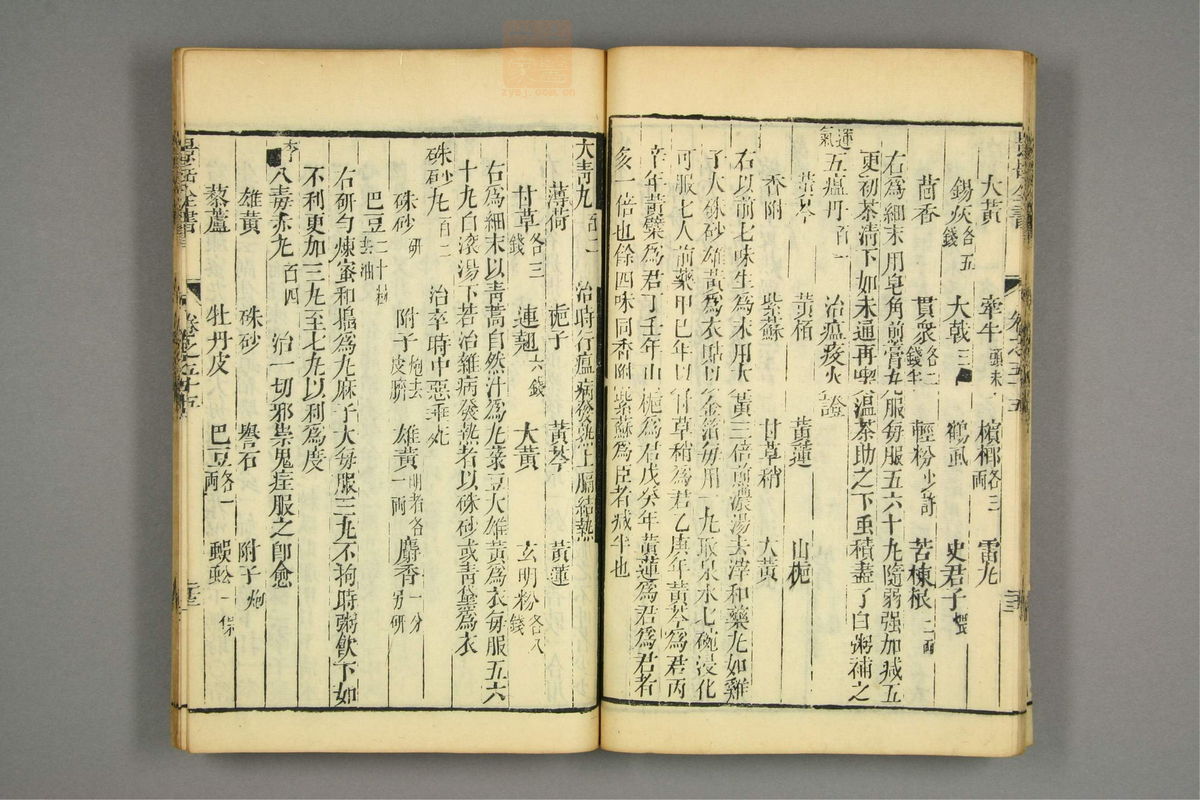 景岳全書 卷之五十五
大黃 牽牛頭末一 檳榔各三兩 雷丸
錫灰各五錢 大戟三 鶴虱 史君子煨
茴香 貫衆各二錢半 輕粉少許 苦楝根二兩
右爲細末用皂角煎膏丸服每服五六十丸隨弱强加減五
更初茶清下如未通再喫溫茶助之下虫積盡了白粥補之
運氣五瘟丹百一 治瘟疫火證
黃芩 黃栢 黃蓮 山梔
香附 紫蘇 甘草稍 大黃
右以前七味生爲末用大黃三倍煎濃湯去滓和藥丸如雞
子大硃砂雄黃爲衣貼以金箔每用一丸取泉水七碗浸化
可服七人前藥甲巳年以甘草稍爲君乙庚年黃芩爲君丙
辛年黃蘗爲君丁壬年山梔爲君戊癸年黃蓮爲君爲君者
多一倍也餘四味同香附紫蘇爲臣者减半也
大青丸百二 治時行瘟病後熱上膈結熱
薄荷 梔子 黃芩 黃蓮
甘草各三錢 連翹六錢 大黃 玄明粉各八錢
右爲細末以青蒿自然汁爲丸菉豆大雄黃爲衣每服五六
十丸白滚湯下若治雜病發熱者以硃砂或青黛爲衣
硃砂丸百二 治卒時中惡垂死
硃砂研 附子炮去皮臍 雄黃明者各一兩 麝香一分另研
巴豆二十粒去油
右研勻煉蜜和搗爲丸麻子大每服三丸不拘時粥飲下如
不利更加三丸至七丸以利爲度
李八毒赤丸百四 治一切邪祟鬼症服之卽愈
雄黃 硃砂 礬石 附子炮
藜蘆 牡丹皮 巴豆各一兩 蜈蚣一條
景岳全書 卷之五十五